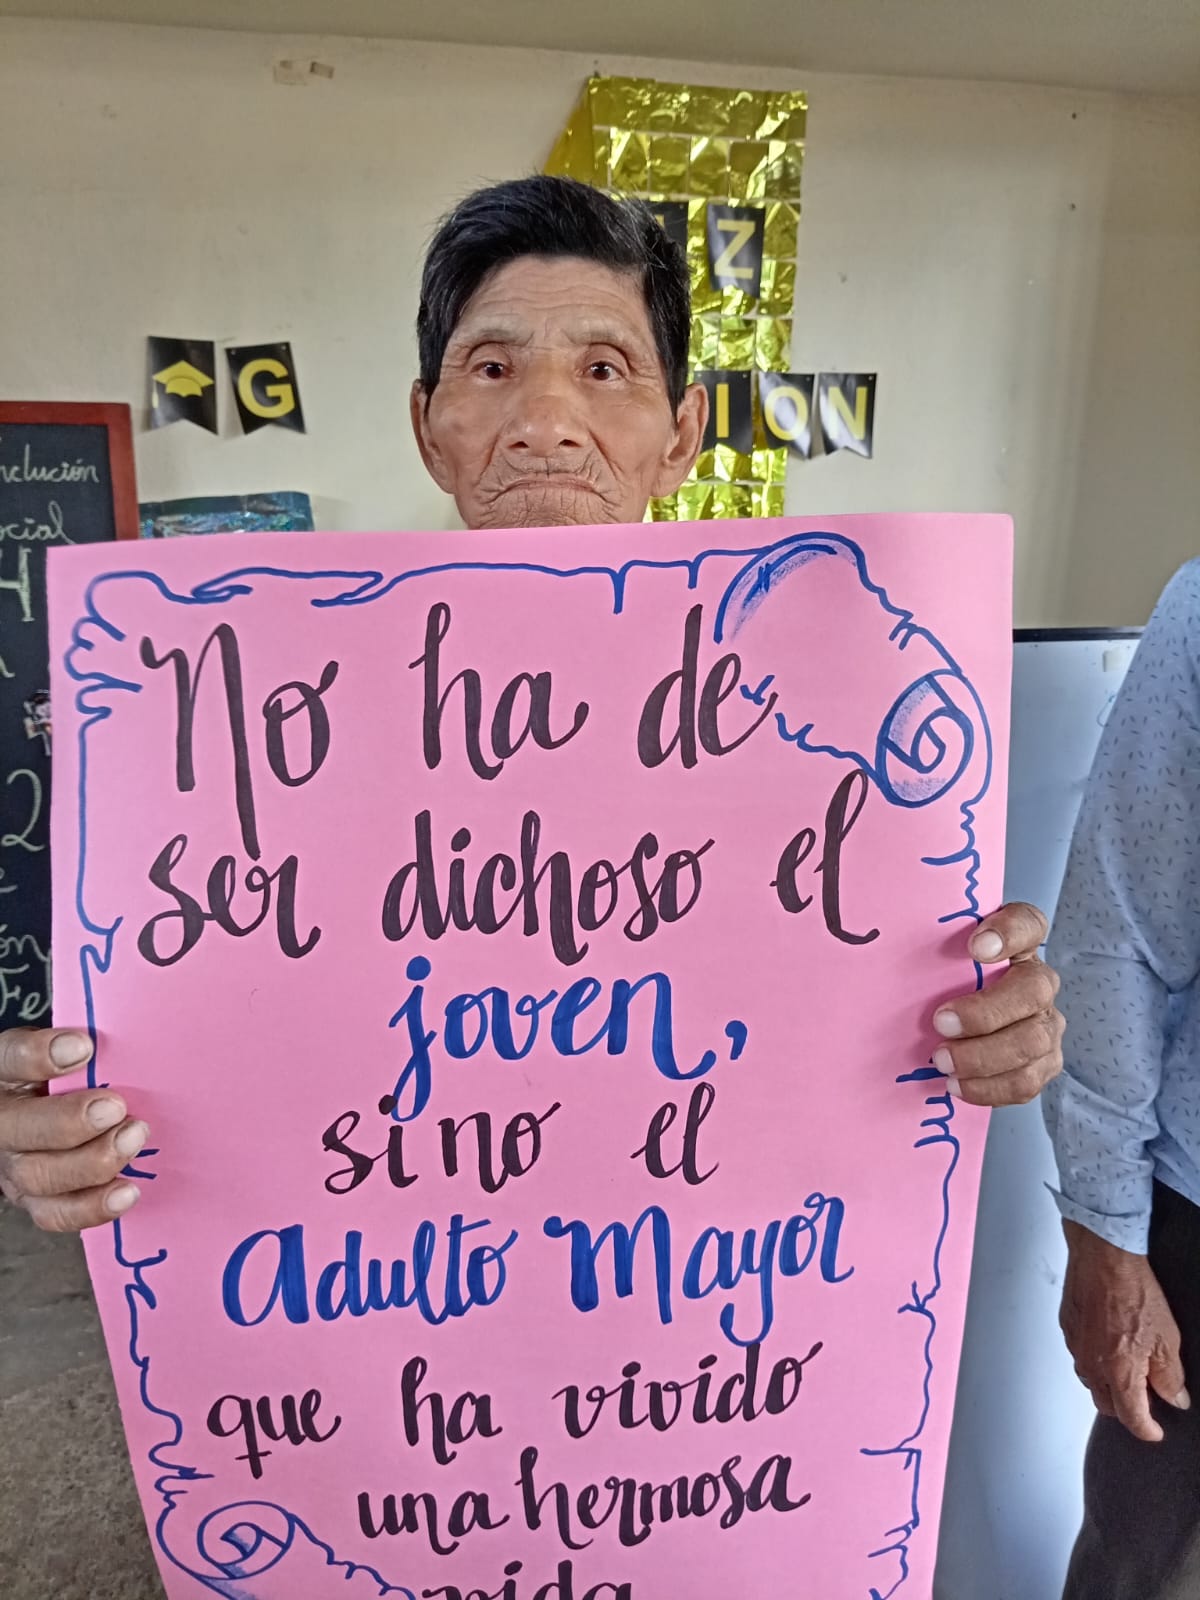 Z
G
ION
nclusión
ocial
4
2
ón
Fel
No ha de
ser dichoso el
joven,
sino el
Adulto Mayor
que ha vivido
una hermosa
vida